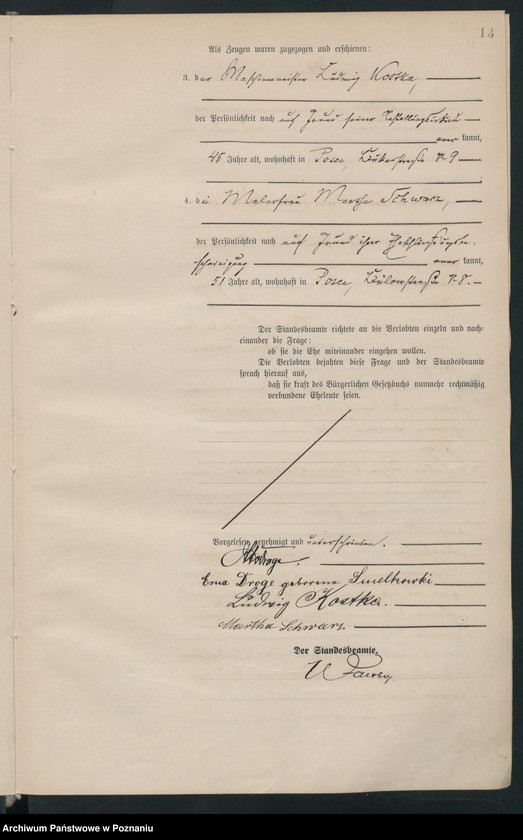 13
Als Zeugen waren zugezogen und erschienen:
3. der Maschinenmeister Ludwig Kostka,
der Persönlichkeit nach auf Grund seiner
kannt,
45 Jahre alt, wohnhaft in Posen, № 9
4. die Malerfrau Martha Schwarz,
der Persönlichkeit nach auf Grund ihrer Eheschließungsbe-
scheinigung kannt,
51 Jahre alt, wohnhaft in Posen, Bülowstraße № 8.
Der Standesbeamte richtete an die Verlobten einzeln und nach-
einander die Frage:
ob sie die Ehe miteinander eingehen wollen.
Die Verlobten bejahten diese Frage und der Standesbeamte
sprach hierauf aus,
daß sie kraft des Bürgerlichen Gesetzbuchs nunmehr rechtmäßig
verbundene Eheleute seien.
Vorgelesen, genehmigt und unterschrieben.
Droge.
Erna Droge geborene
Ludwig Kostka.
Martha Schwarz.
Der Standesbeamte,
Archiwum Państwowe w Poznaniu